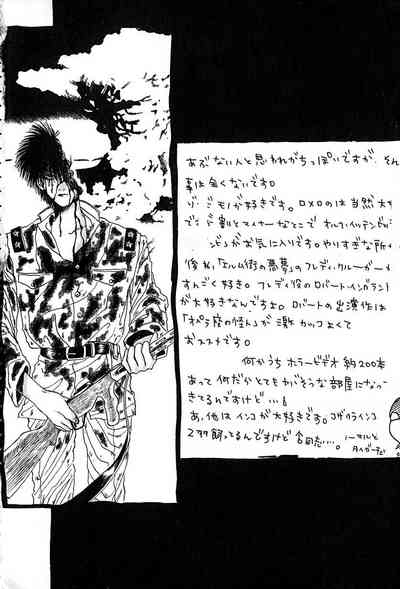 あぶない人と思われがちっぽいですが、そん
事は全くないです。
ゾンビモノが好きです。ロメロのは当然大
で、ド割とマイナーなとこで
ンビ」がお気に入りです。やりすぎな所
後ね、「エルム街の悪夢」のフレディ・クルーガー
すんごく好き。フレディ役のロバート・イングランド
が大好きなんですよ。ロバートの出演作は
「オペラ座の怪人」が激カッコよくて
おススメです。
何かうちホラービデオ約200本
あって何だかとてもヤバそうな部屋になっ
きてるんですけど…。
あ、他はインコが大好きです。コザクラインコ
2羽飼ってるんですけど
ノーマルと
タイガーチェ